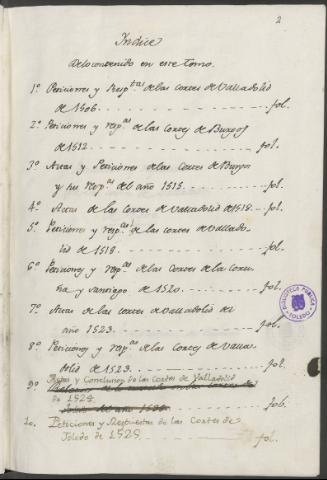 2
Indice
Delo contenido en este tomo.
1º Peticiones y Resp.tas de las cortes de Valladolid
de 1506. fol.
2º Peticiones y resp.as de las cortes de Burgos
de 1512. fol.
3º Actas y Peticiones de las Cortes de Burgos
y sus resp.as del año 1515. fol.
4º Actas de las cortes de Valladolid de 1518. fol.
5º Peticiones y resp.as de las cortes de Vallado-
lid de 1518. fol.
6º Peticiones y resp.as de las Cortes de la Coru-
ña y santiago de 1520. fol.
7º Actas de las cortes de Valladolid del
año 1523. fol.
8º Peticiones y resp.as de las Cortes de Valla-
dolid de 1523. fol.
Actas y Conclusiones de las Cortes de Valladolid
9º
de 1524. fol.
10. Peticiones y Respuestas de las Cortes de
Toledo de 1525. fol.
BIBLIOTECA PUBLICA
TOLEDO